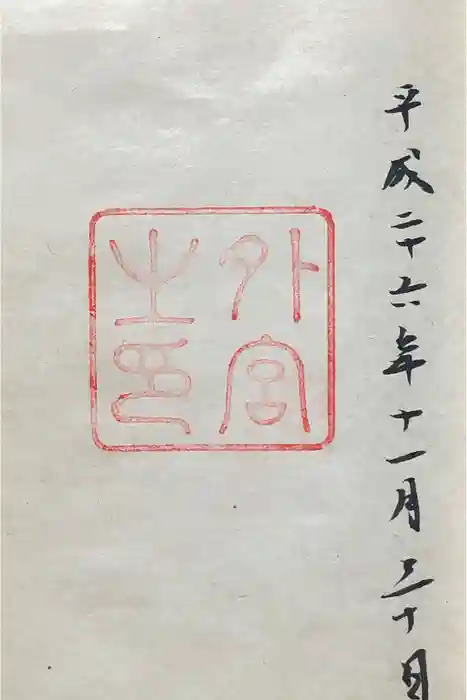 平成二十六年十一月三十日
外宮
之印